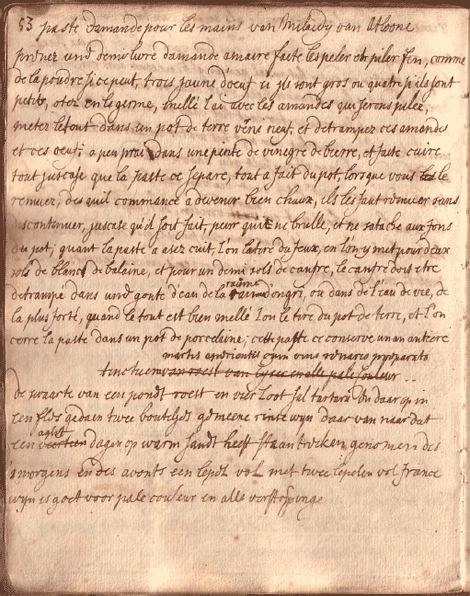 53 paste damande pour les mains van Milaidy van Atloone
prenez und demi livre damande amaire faite les peler et piler fin, comme
de la poudre si ce peut, trois jaune d'oeuf si ils sont gros ou quatre si ils sont
petits, otez en le germe, mellé lai avec les amandes qui serons pilez,
metez le tout dans un pot de terre verni neuf, et detrampez ces amandes
et ces oeuf, a peu prai dans une pente de vinegre de bierre, et faite cuire
tout juscase que la paste ce separe, tout a fait du pot, lorsque vous le
remuez, des quil commance a devenir bien chaux, ils les faut remuer sans
iscontenuer, juscase qu'il soit fait, peur qui ne brulle, et ne satache aux fons
du pot, quant la paste a asez cuit, l'on la tire du feux, en lon y met pour deux
sols de blanc de balaine, et pour un demi sols de canfre, le canfre dois etre
detrampé dans und goute d'eau de la raine dongri, ou dans de l'eau de vie, de
la plus forté, quand le tout est bien mellé lon le tire du pot de terre, et l'on
cerre la paste dans un pot de porcelaine; cette paste ce conserve un an entiere
martis aperitivus cum vino rhenares preparato
tinctuer van roest van yser en alle pale couleur
de quaarte van een pondt roest en vier loot sal tartari du daar op in
een fles gedaen twee bouteljes gemeene rinse wyn daar van naar dat
een aght dagen op warm sandt heeft staan trecken genomen des
smorgens en des avonts een lepel vol met twee lepelen vol france
wyn is goet voor pale couleur en alle verstoppinge